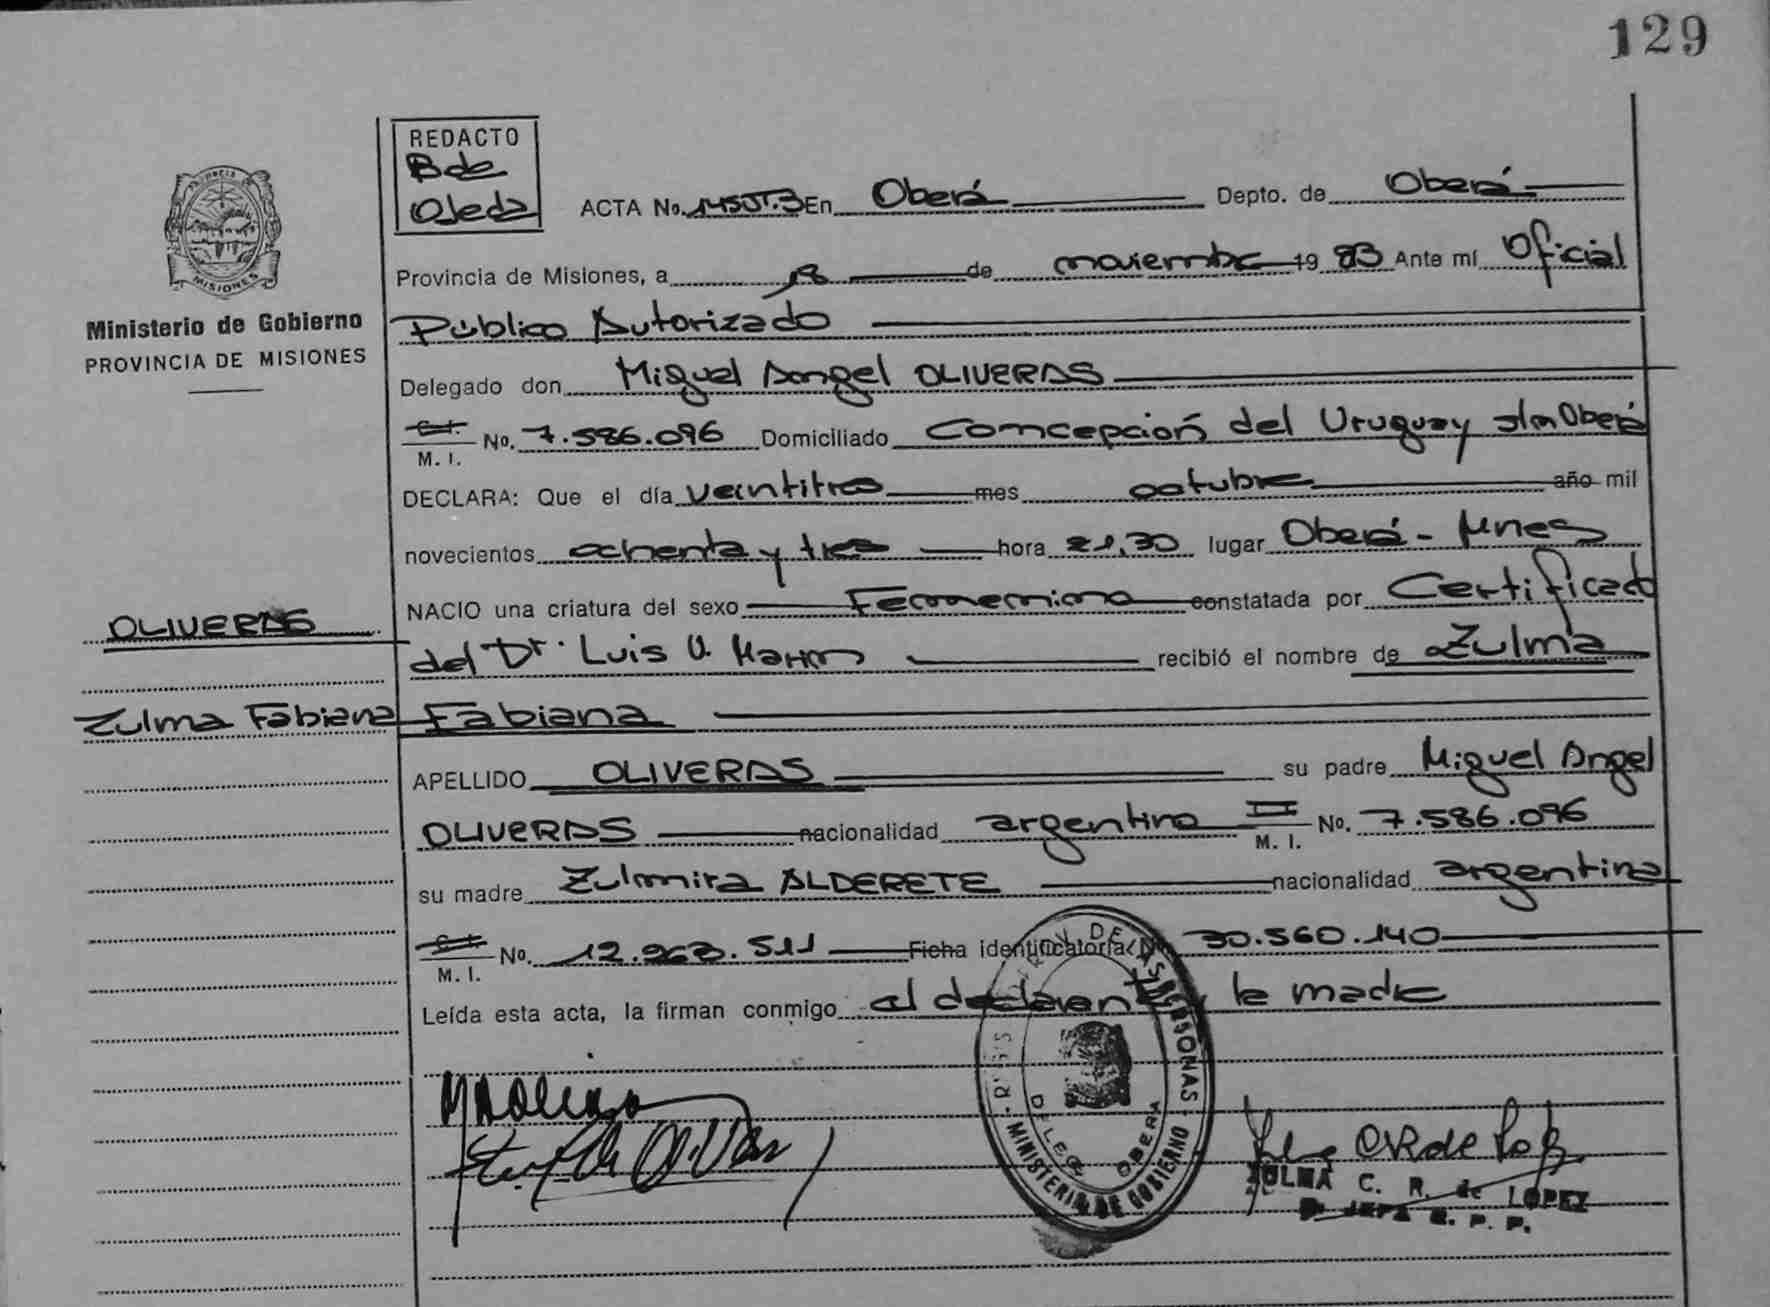 129
REDACTO
B de
Ojeda
ACTA No. En Oberá Depto. de Oberá
Provincia de Misiones, a 18 de noviembre 19 83 Ante mí Oficial
Público Autorizado
Delegado don Miguel Angel OLIVERAS
C.I. M. I. No. 7.586.096 Domiciliado Concepción del Uruguay s/n Oberá
DECLARA: Que el día veintitres mes octubre año mil
novecientos ochenta y tres hora 21,30 lugar Oberá - Mnes
NACIO una criatura del sexo Femenino constatada por Certificado
del Dr. Luis V. recibió el nombre de Zulma
Fabiana
APELLIDO OLIVERAS su padre Miguel Angel
OLIVERAS nacionalidad argentino M. I. No. 7.586.096
su madre Zulmira ALDERETE nacionalidad argentina
C.I. M. I. No. 12.963.511 Ficha identificatoria N 30.560.140
Leída esta acta, la firman conmigo el declarante y la madre
PROVINCIA DE
MISIONES
Ministerio de Gobierno
PROVINCIA DE MISIONES
OLIVERAS
Zulma Fabiana
DE LAS PERSONAS
MINISTERIO DE GOBIERNO
DELEG. OBERA
ZULMA C. R. de LOPEZ
JEFA R. P. P.